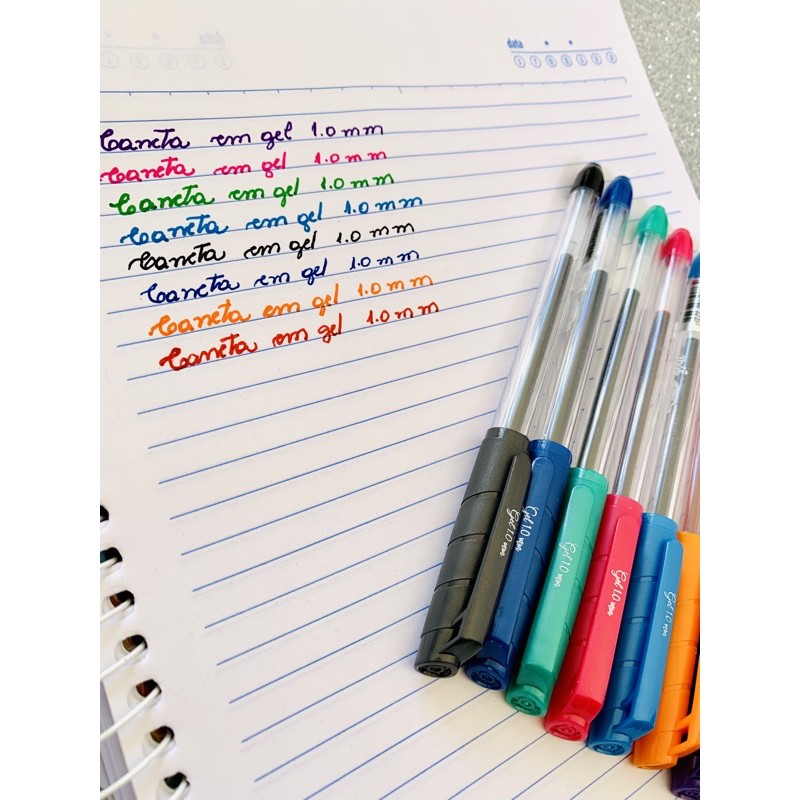 data
Caneta em gel 1.0 mm
Caneta em gel 1.0 mm
Caneta em gel 1.0 mm
Caneta em gel 1.0 mm
Caneta em gel 1.0 mm
Caneta em gel 1.0 mm
Caneta em gel 1.0 mm
Caneta em gel 1.0 mm
Gel 1.0
Gel 1.0
Gel 1.0
Gel 1.0
Gel 1.0